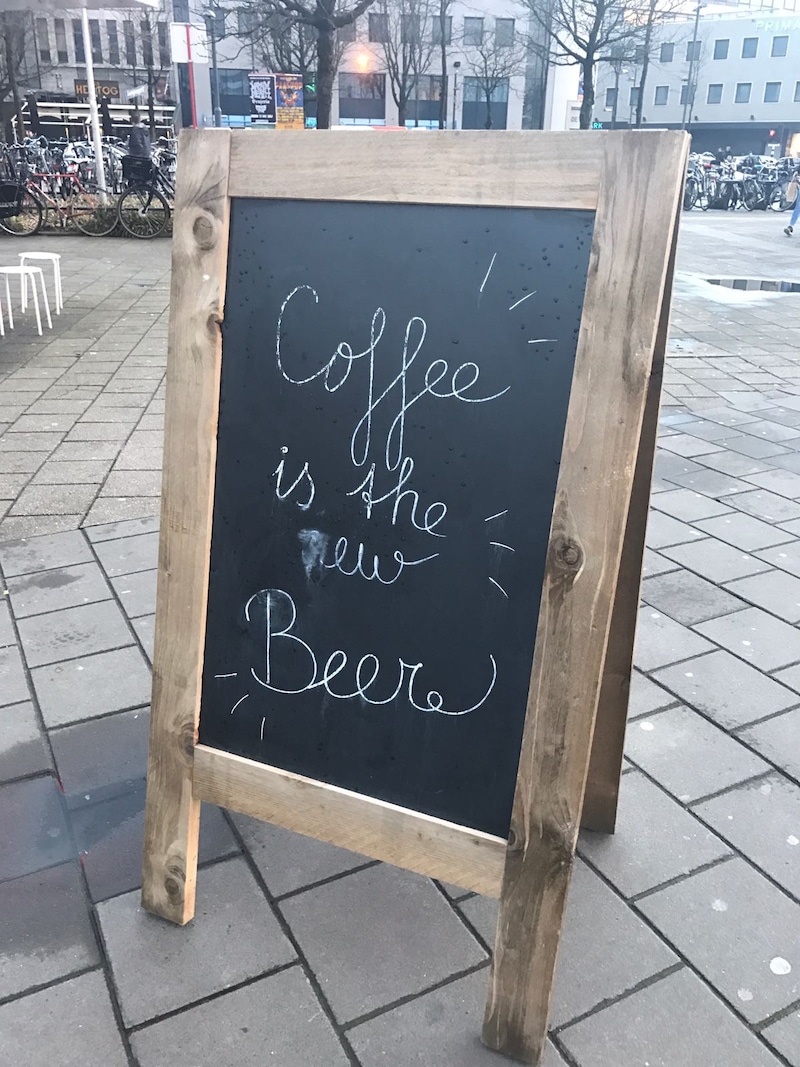 Coffee
is the
new
Beer
HERTOG
PRIMA